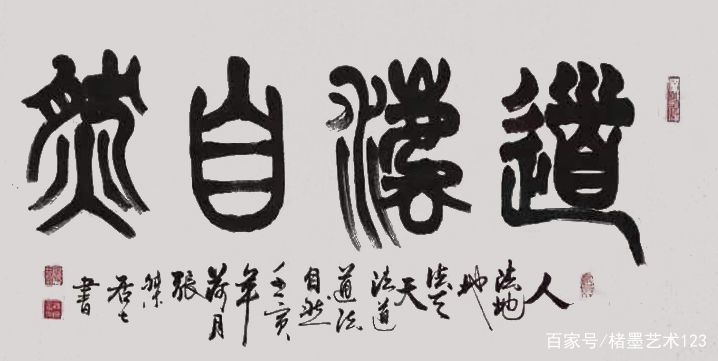 道法自然
人法地地法天天法道道法自然壬寅年荷月張居士書
百家号/楮墨艺术123